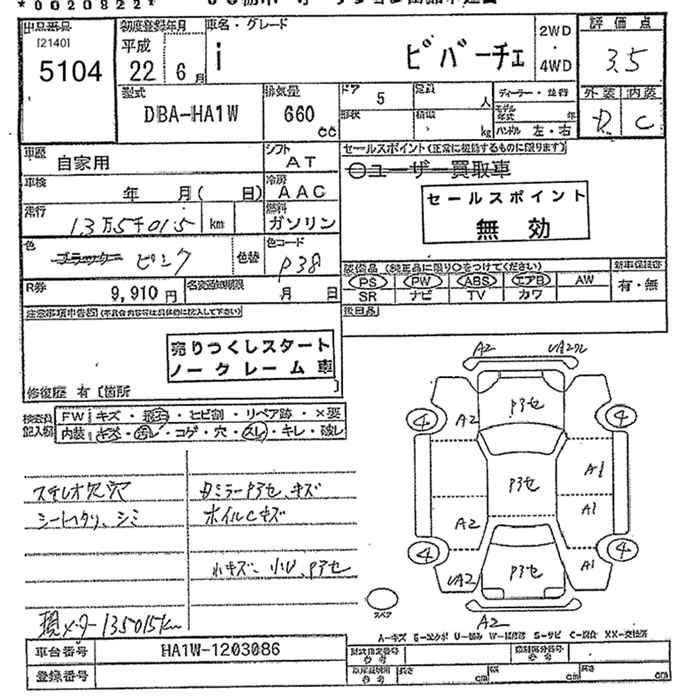 *0020822*
出品番号 初度登録年月 車名・グレード 2WD・4WD 評価点
[2140]
5104 平成 22 6月 i ビバーチェ 3.5
型式 排気量 ドア 定員 ディーラー・並行 外装 内装
DBA-HA1W 660 cc 5 人 モデル年式 年 D C
形状 積載 kg ハンドル 左・右
車歴 自家用 シフト AT セールスポイント(正常に機能するものに限ります)
〇ユーザー買取車
車検 年 月( 日) 冷房 AAC セールスポイント
無効
走行 13万5千015 km 燃料 ガソリン
色 ブラック ピンク 色替 色コード P38
装備品(純正品に限り〇をつけてください) 新車保証書
PS PW ABS エアB AW 有・無
SR ナビ TV カワ
R券 9,910円 名変通知期限 月 日
後日品
注意事項申告欄(不具合内容等は具体的に記入して下さい)
売りつくしスタート
ノークレーム車
修復歴 有 [箇所
検査員記入欄 FW キズ・飛石・ヒビ割・リペア跡・×要
内装 キズ・汚レ・コゲ・穴・スレ・キレ・破レ
A2 UA2
P3セ
4 A2 4
P3セ A1
A2 A1
4 4
UA2 P3セ A1
A2
スペア
ステレオ欠穴 キズ
シートヘタリ、シミ ホイルCキズ
小キズ 小U P3セ
現メーター135015km
A-キズ U-凹み S-サビ C-腐食 XX-交換済
車台番号 HA1W-1203086
登録番号
型式指定番号 参考 類別区分番号 参考
長さ cm 幅 cm 高さ cm